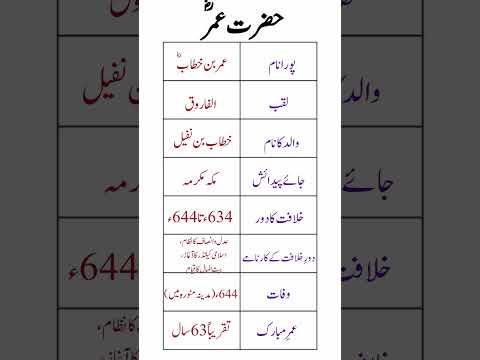 حضرت عمرؓ
پورا نام عمر بن خطابؓ
لقب الفاروق
والد کا نام خطاب بن نفیل
جائے پیدائش مکہ مکرمہ
خلافت کا دور 634ء تا 644ء
دورِ خلافت کے کارنامے عدل و انصاف کا نظام،
اسلامی کیلنڈر کا آغاز،
بیت المال کا قیام
وفات 644ء (مدینہ منورہ میں)
عمر مبارک تقریباً 63 سال